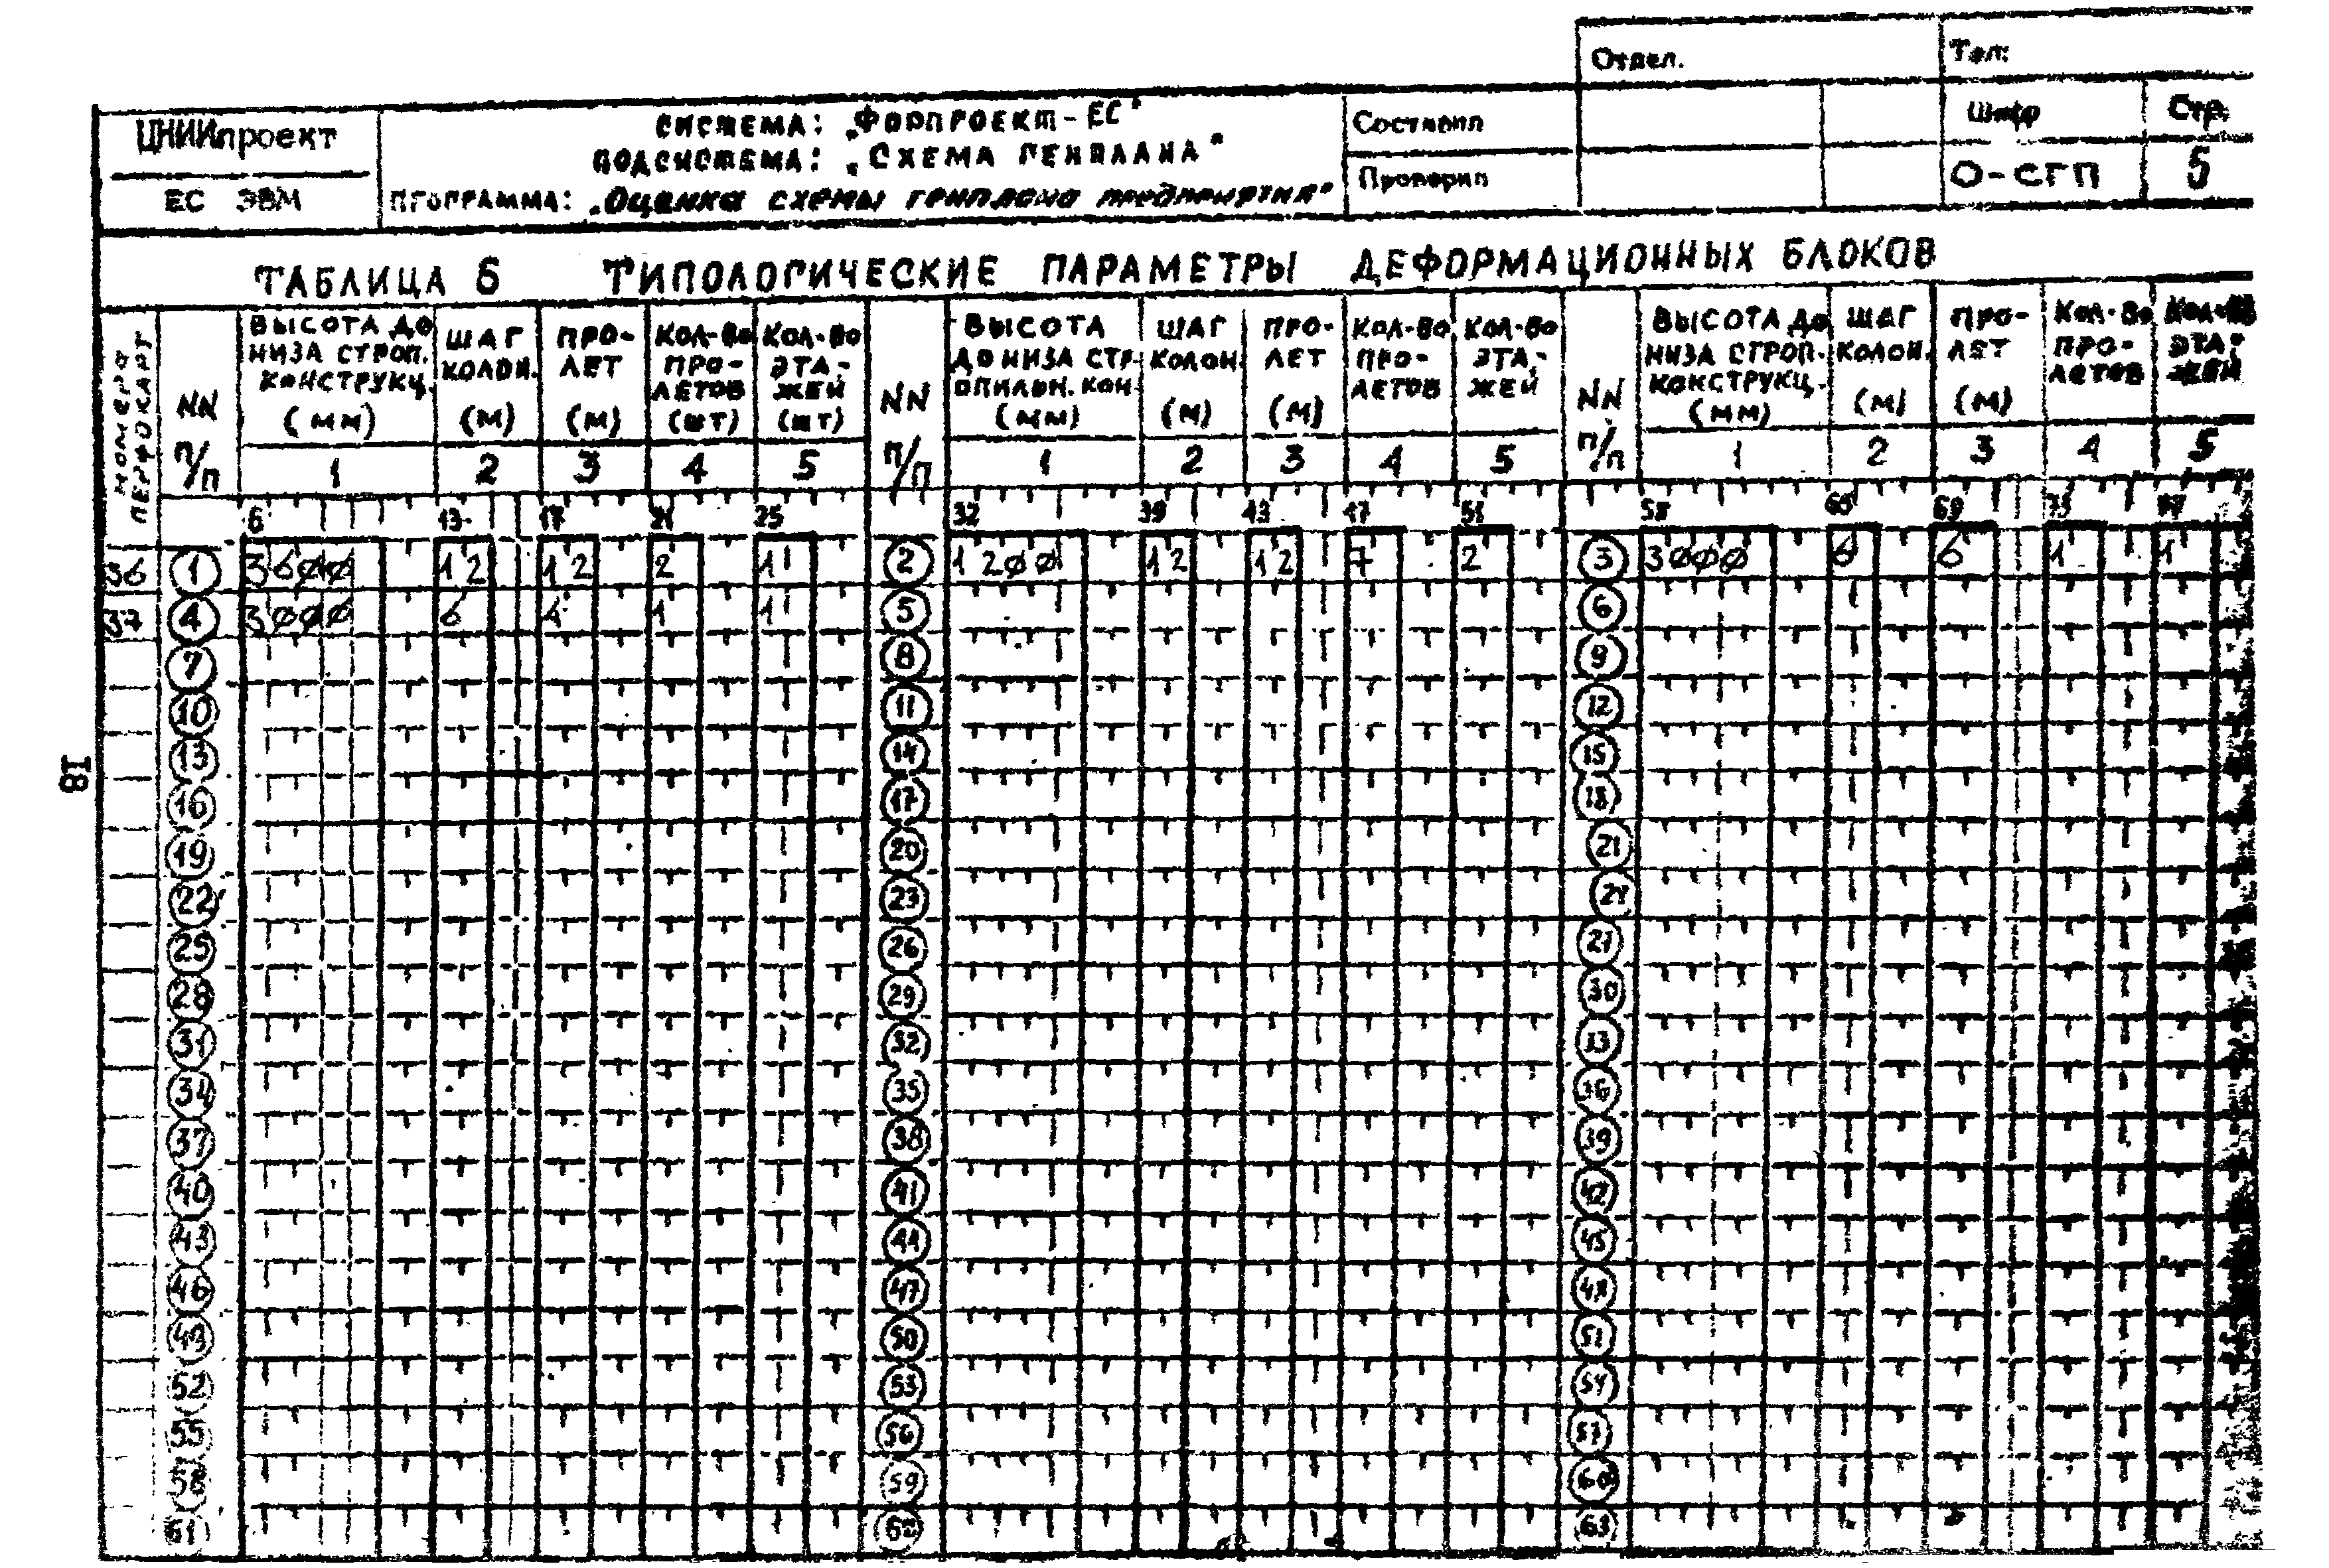 Отдел. Тел:
ЦНИИпроект
ЕС ЭВМ
СИСТЕМА: „ФОРПРОЕКТ-ЕС"
ПОДСИСТЕМА: „СХЕМА ГЕНПЛАНА"
ПРОГРАММА: „Оценка схемы генплана предприятия"
Составил
Проверил
Шифр Стр.
О-СГП 5
ТАБЛИЦА 6 ТИПОЛОГИЧЕСКИЕ ПАРАМЕТРЫ ДЕФОРМАЦИОННЫХ БЛОКОВ
НОМЕРА ПЕРФОКАРТ
NN П/П
ВЫСОТА ДО НИЗА СТРОП. КОНСТРУКЦ. (ММ)
ШАГ КОЛОН. (М)
ПРО-ЛЕТ (М)
КОЛ-ВО ПРО-ЛЕТОВ (ШТ)
КОЛ-ВО ЭТА-ЖЕЙ (ШТ)
NN П/П
ВЫСОТА ДО НИЗА СТР-ОПИЛЬН. КОН. (ММ)
ШАГ КОЛОН. (М)
ПРО-ЛЕТ (М)
КОЛ-ВО ПРО-ЛЕТОВ
КОЛ-ВО ЭТА-ЖЕЙ
NN П/П
ВЫСОТА ДО НИЗА СТРОП. КОНСТРУКЦ. (ММ)
ШАГ КОЛОН. (М)
ПРО-ЛЕТ (М)
КОЛ-ВО ПРО-ЛЕТОВ
КОЛ-ВО ЭТА-ЖЕЙ
1 2 3 4 5 1 2 3 4 5 1 2 3 4 5
6 13 17 21 25 32 39 43 47 51 58 65 69 73 77
36 1 36ØØ 12 12 2 1 2 12ØØ 12 12 7 2 3 3ØØØ 6 6 1 1
37 4 3ØØØ 6 1 1 5 6
7 8 9
10 11 12
13 14 15
16 17 18
19 20 21
22 23 24
25 26 27
28 29 30
31 32 33
34 35 36
37 38 39
40 41 42
43 44 45
46 47 48
49 50 51
52 53 54
55 56 57
58 59 60
61 62 63
18